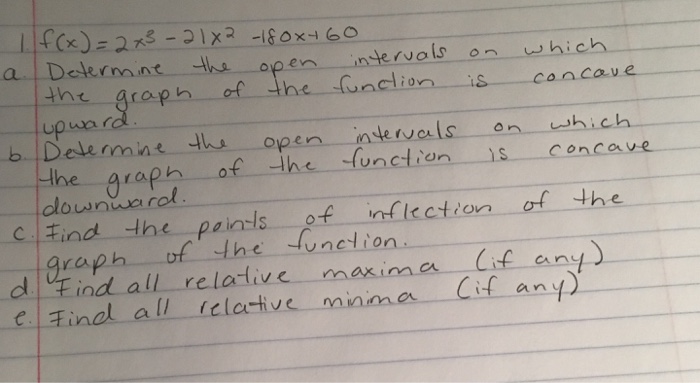 1. f(x) = 2x³ - 21x² - 180x + 60
a Determine the open intervals on which
the graph of the function is concave
upward.
b. Determine the open intervals on which
the graph of the function is concave
downward.
c. Find the points of inflection of the
graph of the function.
d. Find all relative maxima (if any)
e. Find all relative minima (if any)